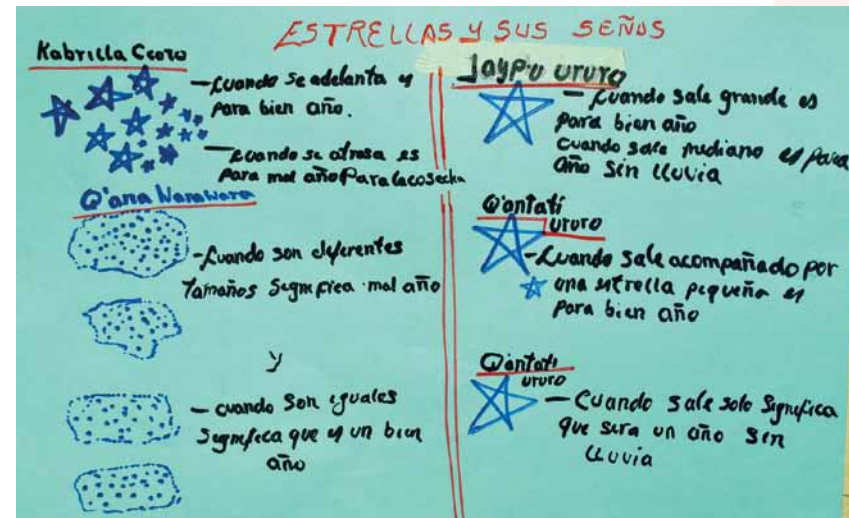 ESTRELLAS Y SUS SEÑAS
Kabrilla Ccoto
— Cuando se adelanta es
Para bien año.
— Cuando se atrasa es
Para mal año Para la cosecha
Q'ana Warawara
- Cuando son diferentes
Tamaños Significa mal año
y
— cuando Son iguales
Significa que es un bien
año
Jaypu ururo
— Cuando sale grande es
para bien año
Cuando sale mediano es para
Año Sin lluvia
Q'antati
ururo
- Cuando sale acompañado por
una estrella pequeña es
para bien año
Qantati
ururo
— Cuando sale solo Significa
que sera un año sin
lluvia